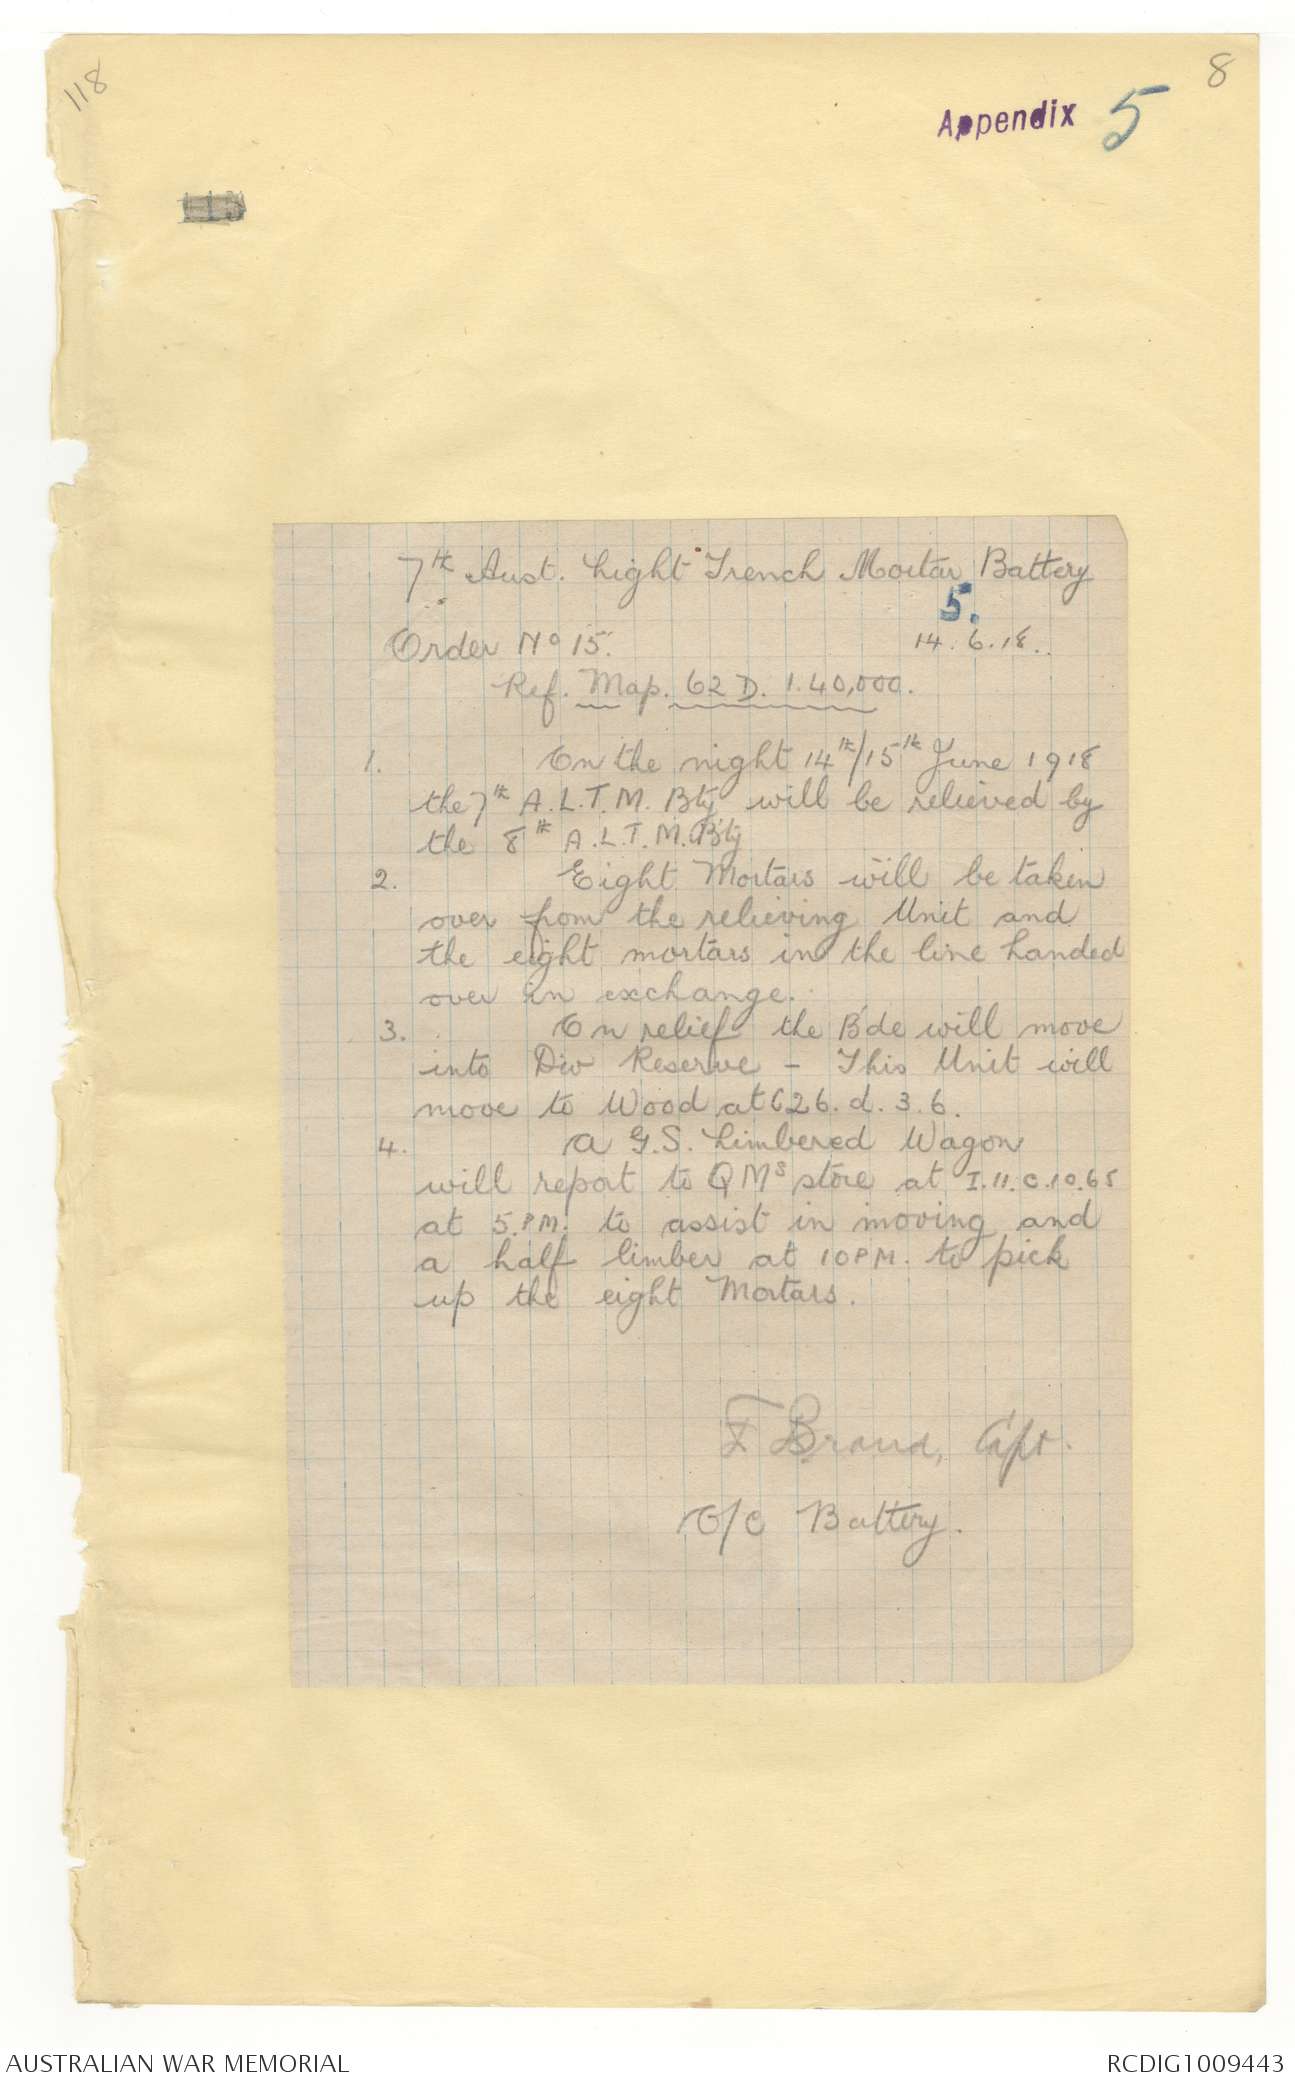 118
8
Appendix 5
7th Aust. Light Trench Mortar Battery
5.
Order No 15. 14.6.18..
Ref. Map. 62 D. 1.40,000.
1. On the night 14th/15th June 1918
the 7th A.L.T.M. Bty will be relieved by
the 8th A.L.T.M. Bty
2. Eight Mortars will be taken
over from the relieving Unit and
the eight mortars in the line handed
over in exchange.
3. On relief the B'de will move
into Div Reserve - This Unit will
move to Wood at C26.d.3.6.
4. A G.S. Limbered Wagon
will report to QMs store at I.11.c.10.65
at 5.P.M. to assist in moving and
a half limber at 10PM. to pick
up the eight Mortars.
Capt.
O/C Battery.
AUSTRALIAN WAR MEMORIAL
RCDIG1009443